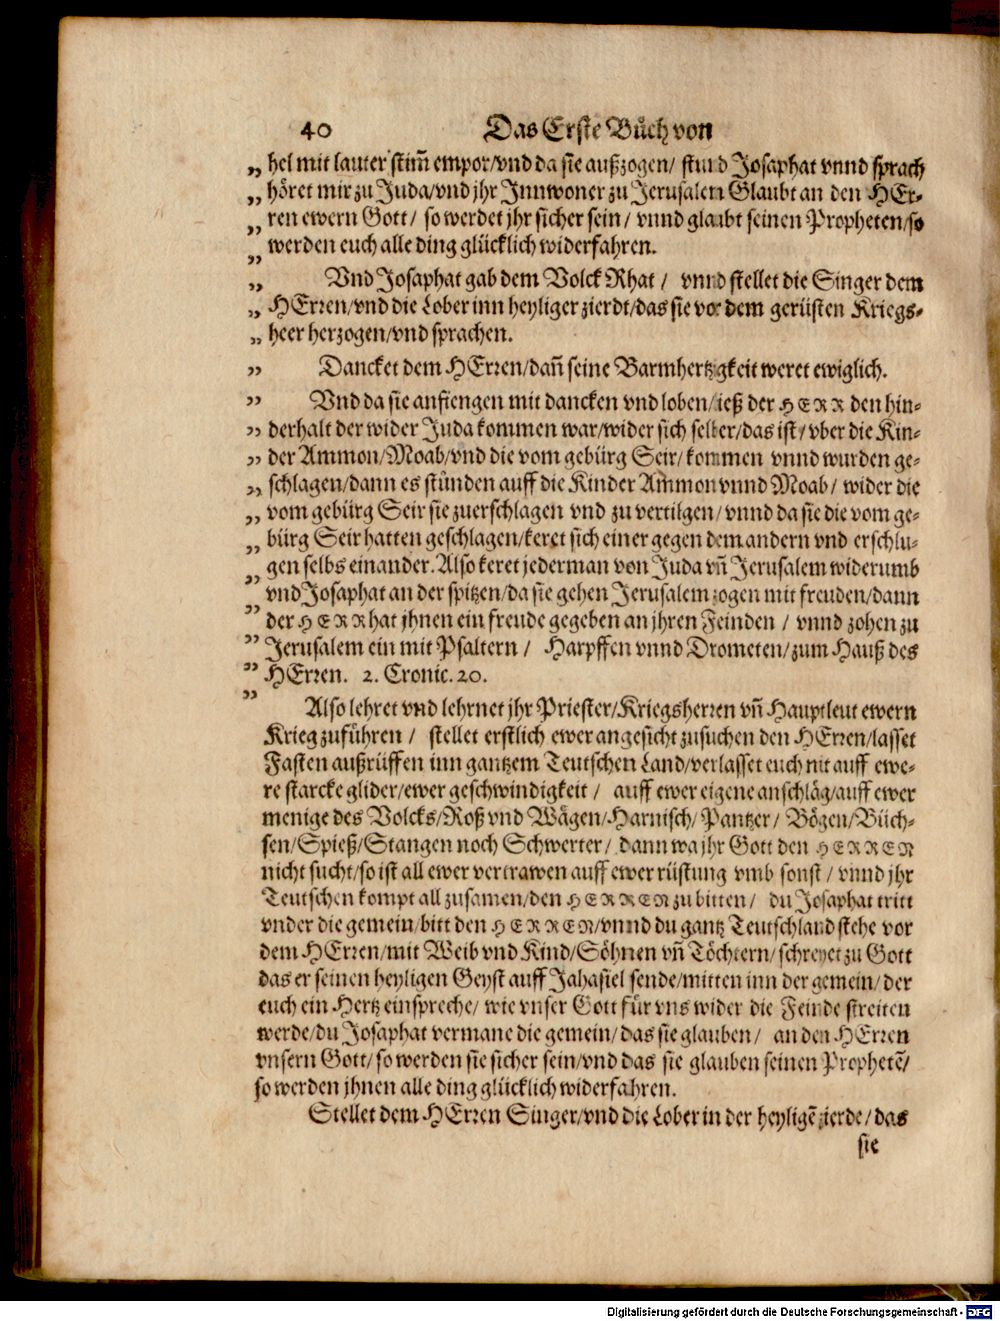 40 Das Erste Buͤch von
„ hel mit lauter stim̃ empor/vnd da sie außzogen/ stund Josaphat vnnd sprach
„ hoͤret mir zu Juda/vnd jhr Innwoner zu Jerusalem Glaubt an den HEr-
„ ren ewern Gott/ so werdet jhr sicher sein/ vnnd glaubt seinen Propheten/so
„ werden euch alle ding gluͤcklich widerfahren.
„ Vnd Josaphat gab dem Volck Rhat/ vnnd stellet die Singer dem
„ HErren/vnd die Lober inn heyliger zierdt/das sie vor dem geruͤsten Kriegs-
„ heer herzogen/vnd sprachen.
„ Dancket dem HErren/dañ seine Barmhertzigkeit weret ewiglich.
„ Vnd da sie anfiengen mit dancken vnd loben/ließ der HERR den hin-
„ derhalt der wider Juda kommen war/wider sich selber/das ist/vber die Kin-
„ der Ammon/Moab/vnd die vom gebuͤrg Seir/kommen vnnd wurden ge-
„ schlagen/dann es stuͤnden auff die Kinder Ammon vnnd Moab/ wider die
„ vom gebuͤrg Seir sie zuerschlagen vnd zu vertilgen/vnnd da sie die vom ge-
„ buͤrg Seir hatten geschlagen/keret sich einer gegen dem andern vnd erschlu-
„ gen selbs einander. Also keret jederman von Juda vñ Jerusalem widerumb
„ vnd Josaphat an der spitzen/da sie gehen Jerusalem zogen mit freuden/dann
„ der HERR hat jhnen ein freude gegeben an jhren Feinden / vnnd zohen zu
„ Jerusalem ein mit Psaltern / Harpffen vnnd Drometen/zum Hauß des
„ HErren. 2. Cronic. 20.
Also lehret vnd lehrnet jhr Priester/Kriegsherren vñ Hauptleut ewern
Krieg zufuͤhren / stellet erstlich ewer angesicht zusuchen den HErren/lasset
Fasten außruͤffen inn gantzem Teutschen Land/verlasset euch nit auff ewe-
re starcke glider/ewer geschwindigkeit / auff ewer eigene anschlaͤg/auff ewer
menige des Volcks/Roß vnd Waͤgen/Harnisch/Pantzer/ Boͤgen/Buͤch-
sen/Spieß/Stangen noch Schwerter/ dann wa jhr Gott den HERREN
nicht sucht/so ist all ewer vertrawen auff ewer ruͤstung vmb sonst / vnnd jhr
Teutschen kompt all zusamen/den HERREN zu bitten/ du Josaphat tritt
vnder die gemein/bitt den HERREN/vnnd du gantz Teutschland stehe vor
dem HErren/mit Weib vnd Kind/Soͤhnen vñ Toͤchtern/schreyet zu Gott
das er seinen heyligen Geyst auff Jahasiel sende/mitten inn der gemein/der
euch ein Hertz einspreche/ wie vnser Gott fuͤr vns wider die Feinde streiten
werde/du Josaphat vermane die gemein/das sie glauben/ an den HErren
vnsern Gott/so werden sie sicher sein/vnd das sie glauben seinen Prophetẽ/
so werden jhnen alle ding gluͤcklich widerfahren.
Stellet dem HErren Singer/vnd die Lober in der heyligẽ zierde/das
sie
Digitalisierung gefördert durch die Deutsche Forschungsgemeinschaft - DFG